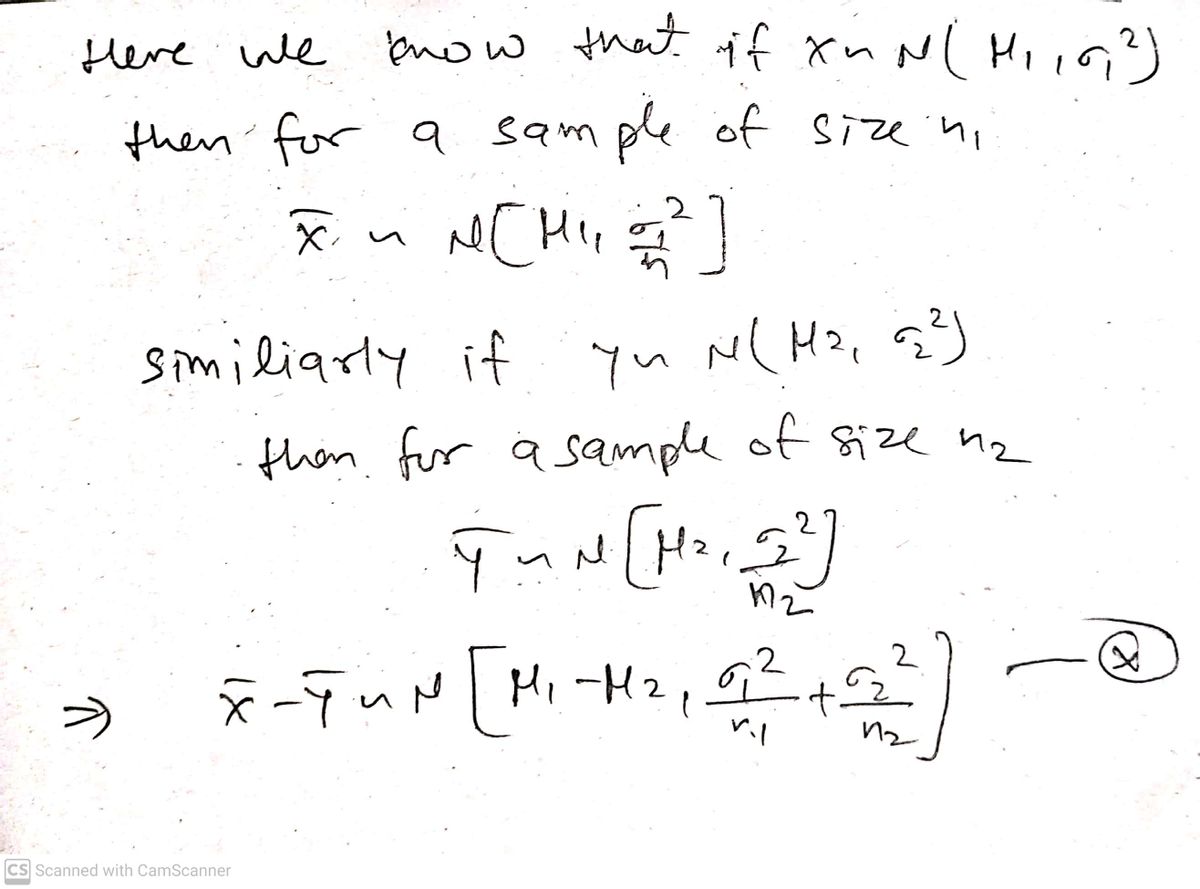 Here we know that if X ~ N( μ₁, σ₁²)
then for a sample of size n₁
X̄ ~ N[ μ₁, σ₁²/n ]
similiarly if Y ~ N( μ₂, σ₂²)
then for a sample of size n₂
Ȳ ~ N [ μ₂, σ₂²/n₂ ]
⇒ X̄ - Ȳ ~ N [ μ₁ - μ₂, σ₁²/n₁ + σ₂²/n₂ ] —
CS Scanned with CamScanner